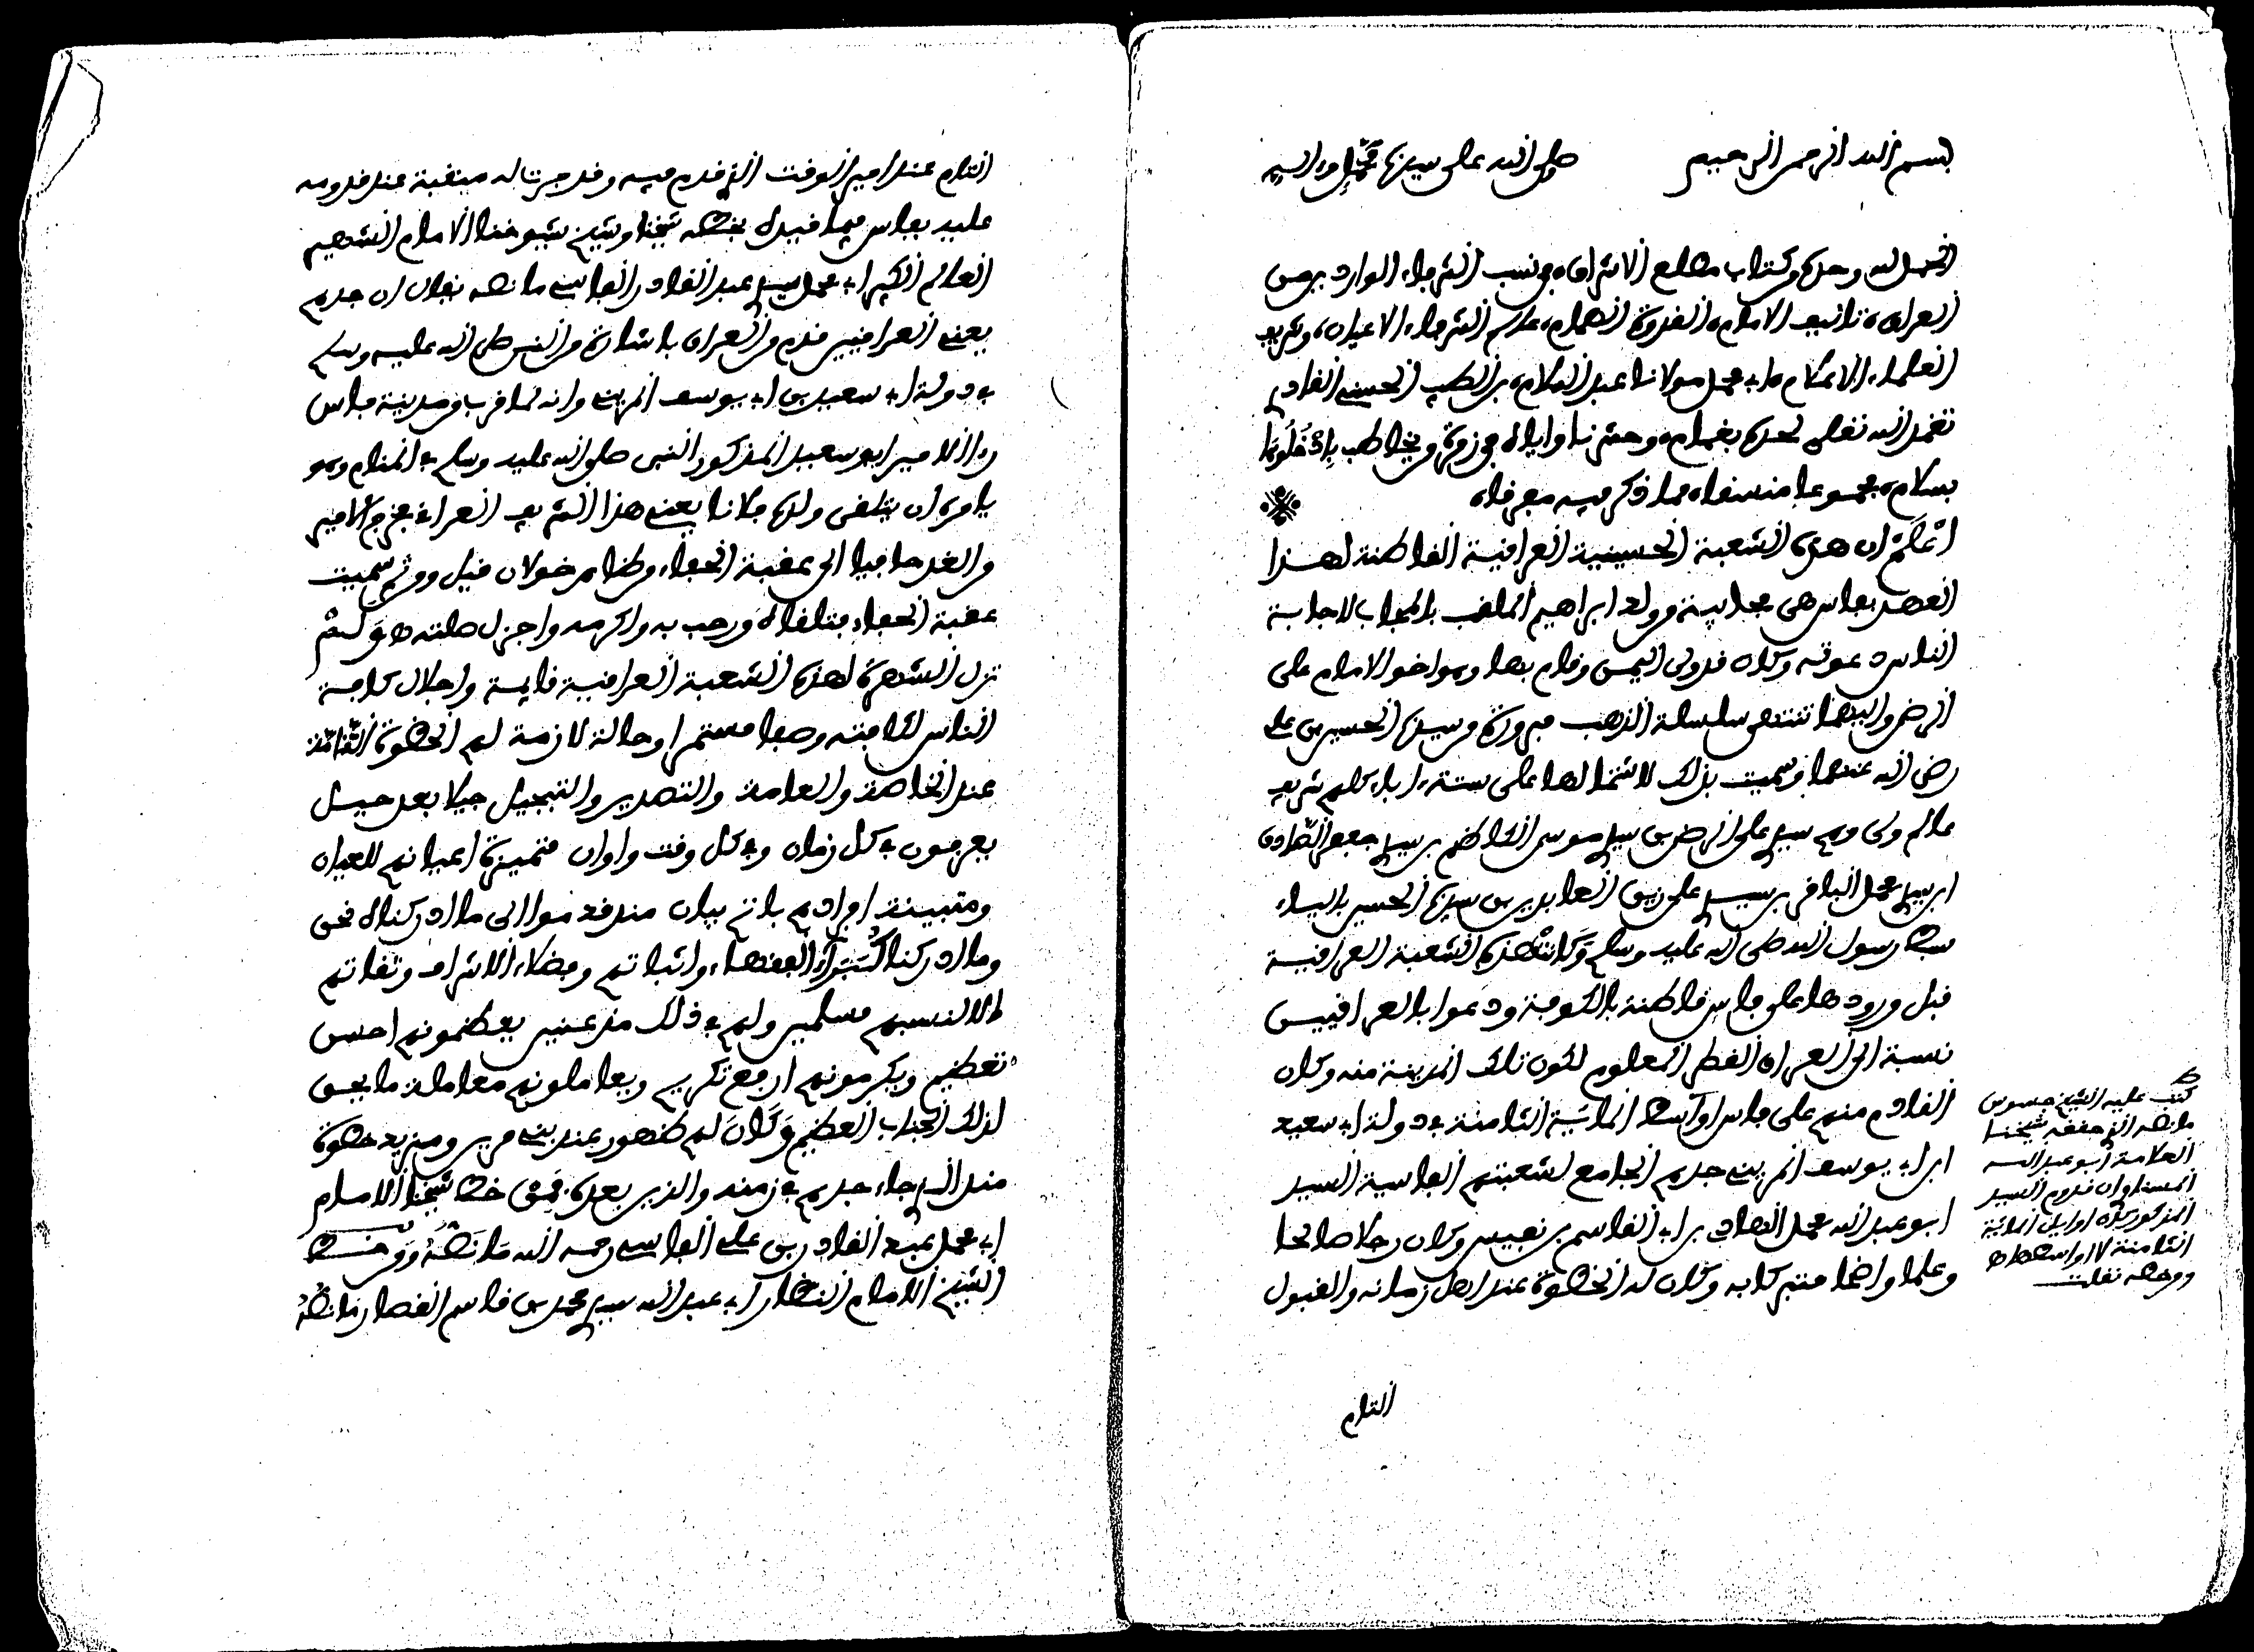 بسم الله الرحمن الرحيم صلى الله على سيدنا محمد وءاله
الحمد لله وحده من كتاب مطلع الاشراق، في نسب الشرفاء الوارد من
العراق، تاليف الامام، القدوة الهمام، علم الشرفاء الاعيان، وشريف
العلماء الاعلام، ابى محمد مولانا عبد السلام، بن الطيب الحسني القادري
تغمد الله تعلى لحده بغمام، وحشرنا واياه في زمرة من يخاطب بادخلوها
بسلام، مجموعا منسقا، مما ذكر فيه مفرقا،
اعلم ان هذه الشعبة الحسينية العراقية القاطنة لهذا
العهد بفاس هي من ولد ابراهيم الملقب بالمجاب لاجابة
الناس دعوته وكان قد ولى اليمن وقام بها وهو اخو الامام على
الرضى واليهما تنتهى سلسلة الذهب من سيدنا الحسين بن على
رضى الله عنهما وسميت بذلك لاشتمالها على ستة اباء كلهم شريف
عالم ولى وهم سيدي على الرضى بن سيدي موسى الكاظم بن سيدي جعفر الصادق
ابن سيدي محمد الباقر بن سيدي على زين العابدين بن سيدنا الحسين بالياء
سبط رسول الله صلى الله عليه وسلم وكانت هذه الشعبة العراقية
قبل ورودها على فاس قاطنة بالكوفة ودعوا بالعراقيين
نسبة الى العراق القطر المعلوم لكون تلك المدينة منه وكان
القادم منهم على فاس اواسط المائية الثامنة في دولة ابى سعيد
ابن ابى يوسف المريني جدهم الجامع لشعبتهم الفاسية السيد
ابو عبد الله محمد الهادى بن ابى القاسم بن نفيس وكان رجلا صالحا
وعلما واضحا متبركا به وكان له الحظوة عند اهل زمانه والقبول
التام
كتب عليه الشيخ جسوس
ما نصه الذي حققه شيخنا
العلامة ابو عبد الله
المسناوي ان قدوم السيد
المذكور كان اوايل المائية
الثامنة لا اواسطها اهـ
ومن خطه نقلت
التام عند امير الوقت الذي قدم فيه وقد جرت له منقبة عند قدومه
عليه بفاس فيما قيده بخطه شيخنا وشيخ شيوخنا الامام الشهير
العالم الكبير ابى محمد سيدي عبد القادر الفاسي ما نصه يقال ان جدهم
يعنى العراقيين قدم من العراق باشارة من النبى صلى الله عليه وسلم
في دولة ابى سعيد بن ابى يوسف المريني وانه لما قرب من مدينة فاس
راى الامير ابو سعيد المذكور النبى صلى الله عليه وسلم في المنام وهو
يامره ان يتلقى ولده فلانا يعنى هذا الشريف العراقي فخرج الامير
من الغد حافيا الى عقبة الحفاء وكذا من خولان قيل ومن ثم سميت
عقبة الحفاء فتلقاه ورحب به واكرمه واجزل صلته اهـ ولم
تزل الشهرة لهذه الشعبة العراقية قايمة واجلال كافة
الناس لكافتهم وصفا مستمرا وحالة لازمة لهم الحظوة التامة
عند الخاصة والعامة والتصدير والتبجيل جيلا بعد جيل
يعرفون في كل زمان وفي كل وقت واوان متميزة اعيانهم للعيان
ومتبينة افرادهم باتم بيان منذ قدموا الى ما ادركناه نحن
وما ادركنا كبراء الفقهاء واثباتهم وفضلاء الاشراف وثقاتهم
الا لنسبهم مسلمين ولهم في ذلك مذعنين يعظمونهم احسن
تعظيم ويكرمونهم ارفع تكريم ويعاملونهم معاملة ما يجب
لذلك الجناب العظيم وكان لهم ظهور عند بنى مرين ومزيد حظوة
منذ جاء جدهم في زمنه والذين بعده فمن خط شيخنا الامام
ابى محمد عبد القادر بن على الفاسي رحمه الله ما نصه ومن خط
الشيخ الامام النظار ابى عبد الله سيدي محمد بن قاسم القصار ما نصه